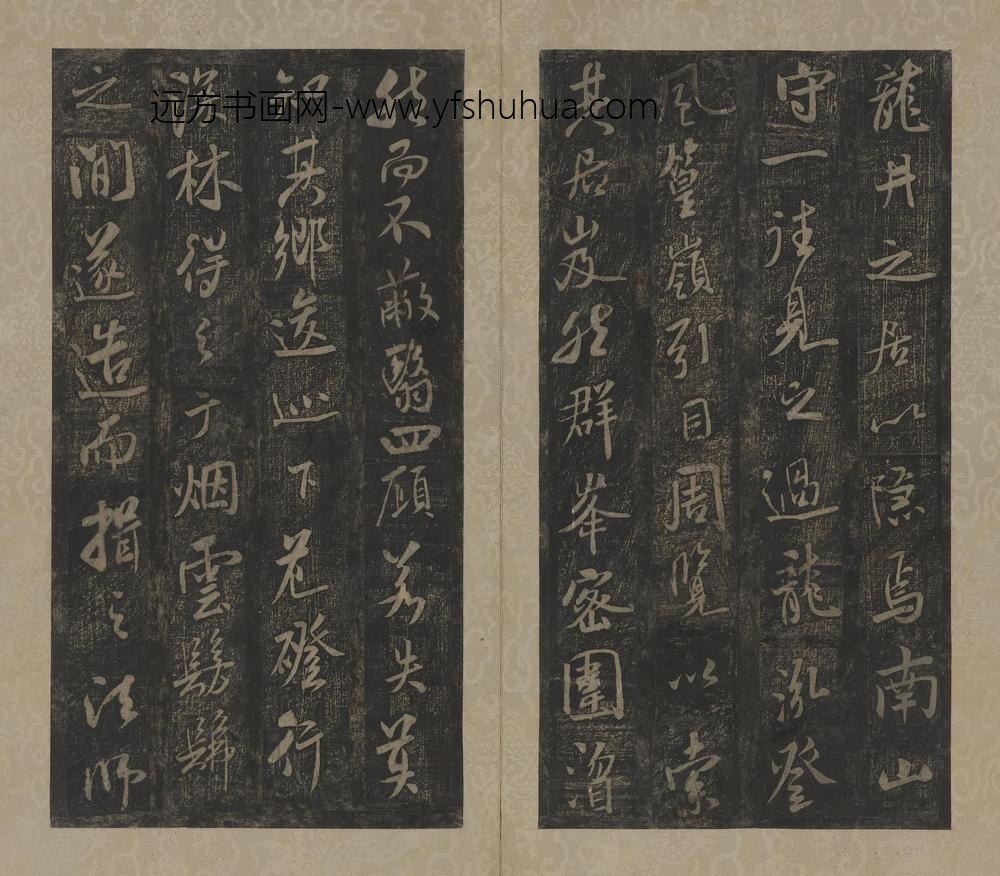 龍井之居以隱焉南山
守一往見之過龍泓登
風篁嶺引目周覽以索
其居岌然群峯密圍溍
然而不蔽翳四顧若失莫
知其鄉逡巡下危磴行
深林得之于烟雲髣髴
之間遂造而揖之法師
远方书画网-www.yfshuhua.com